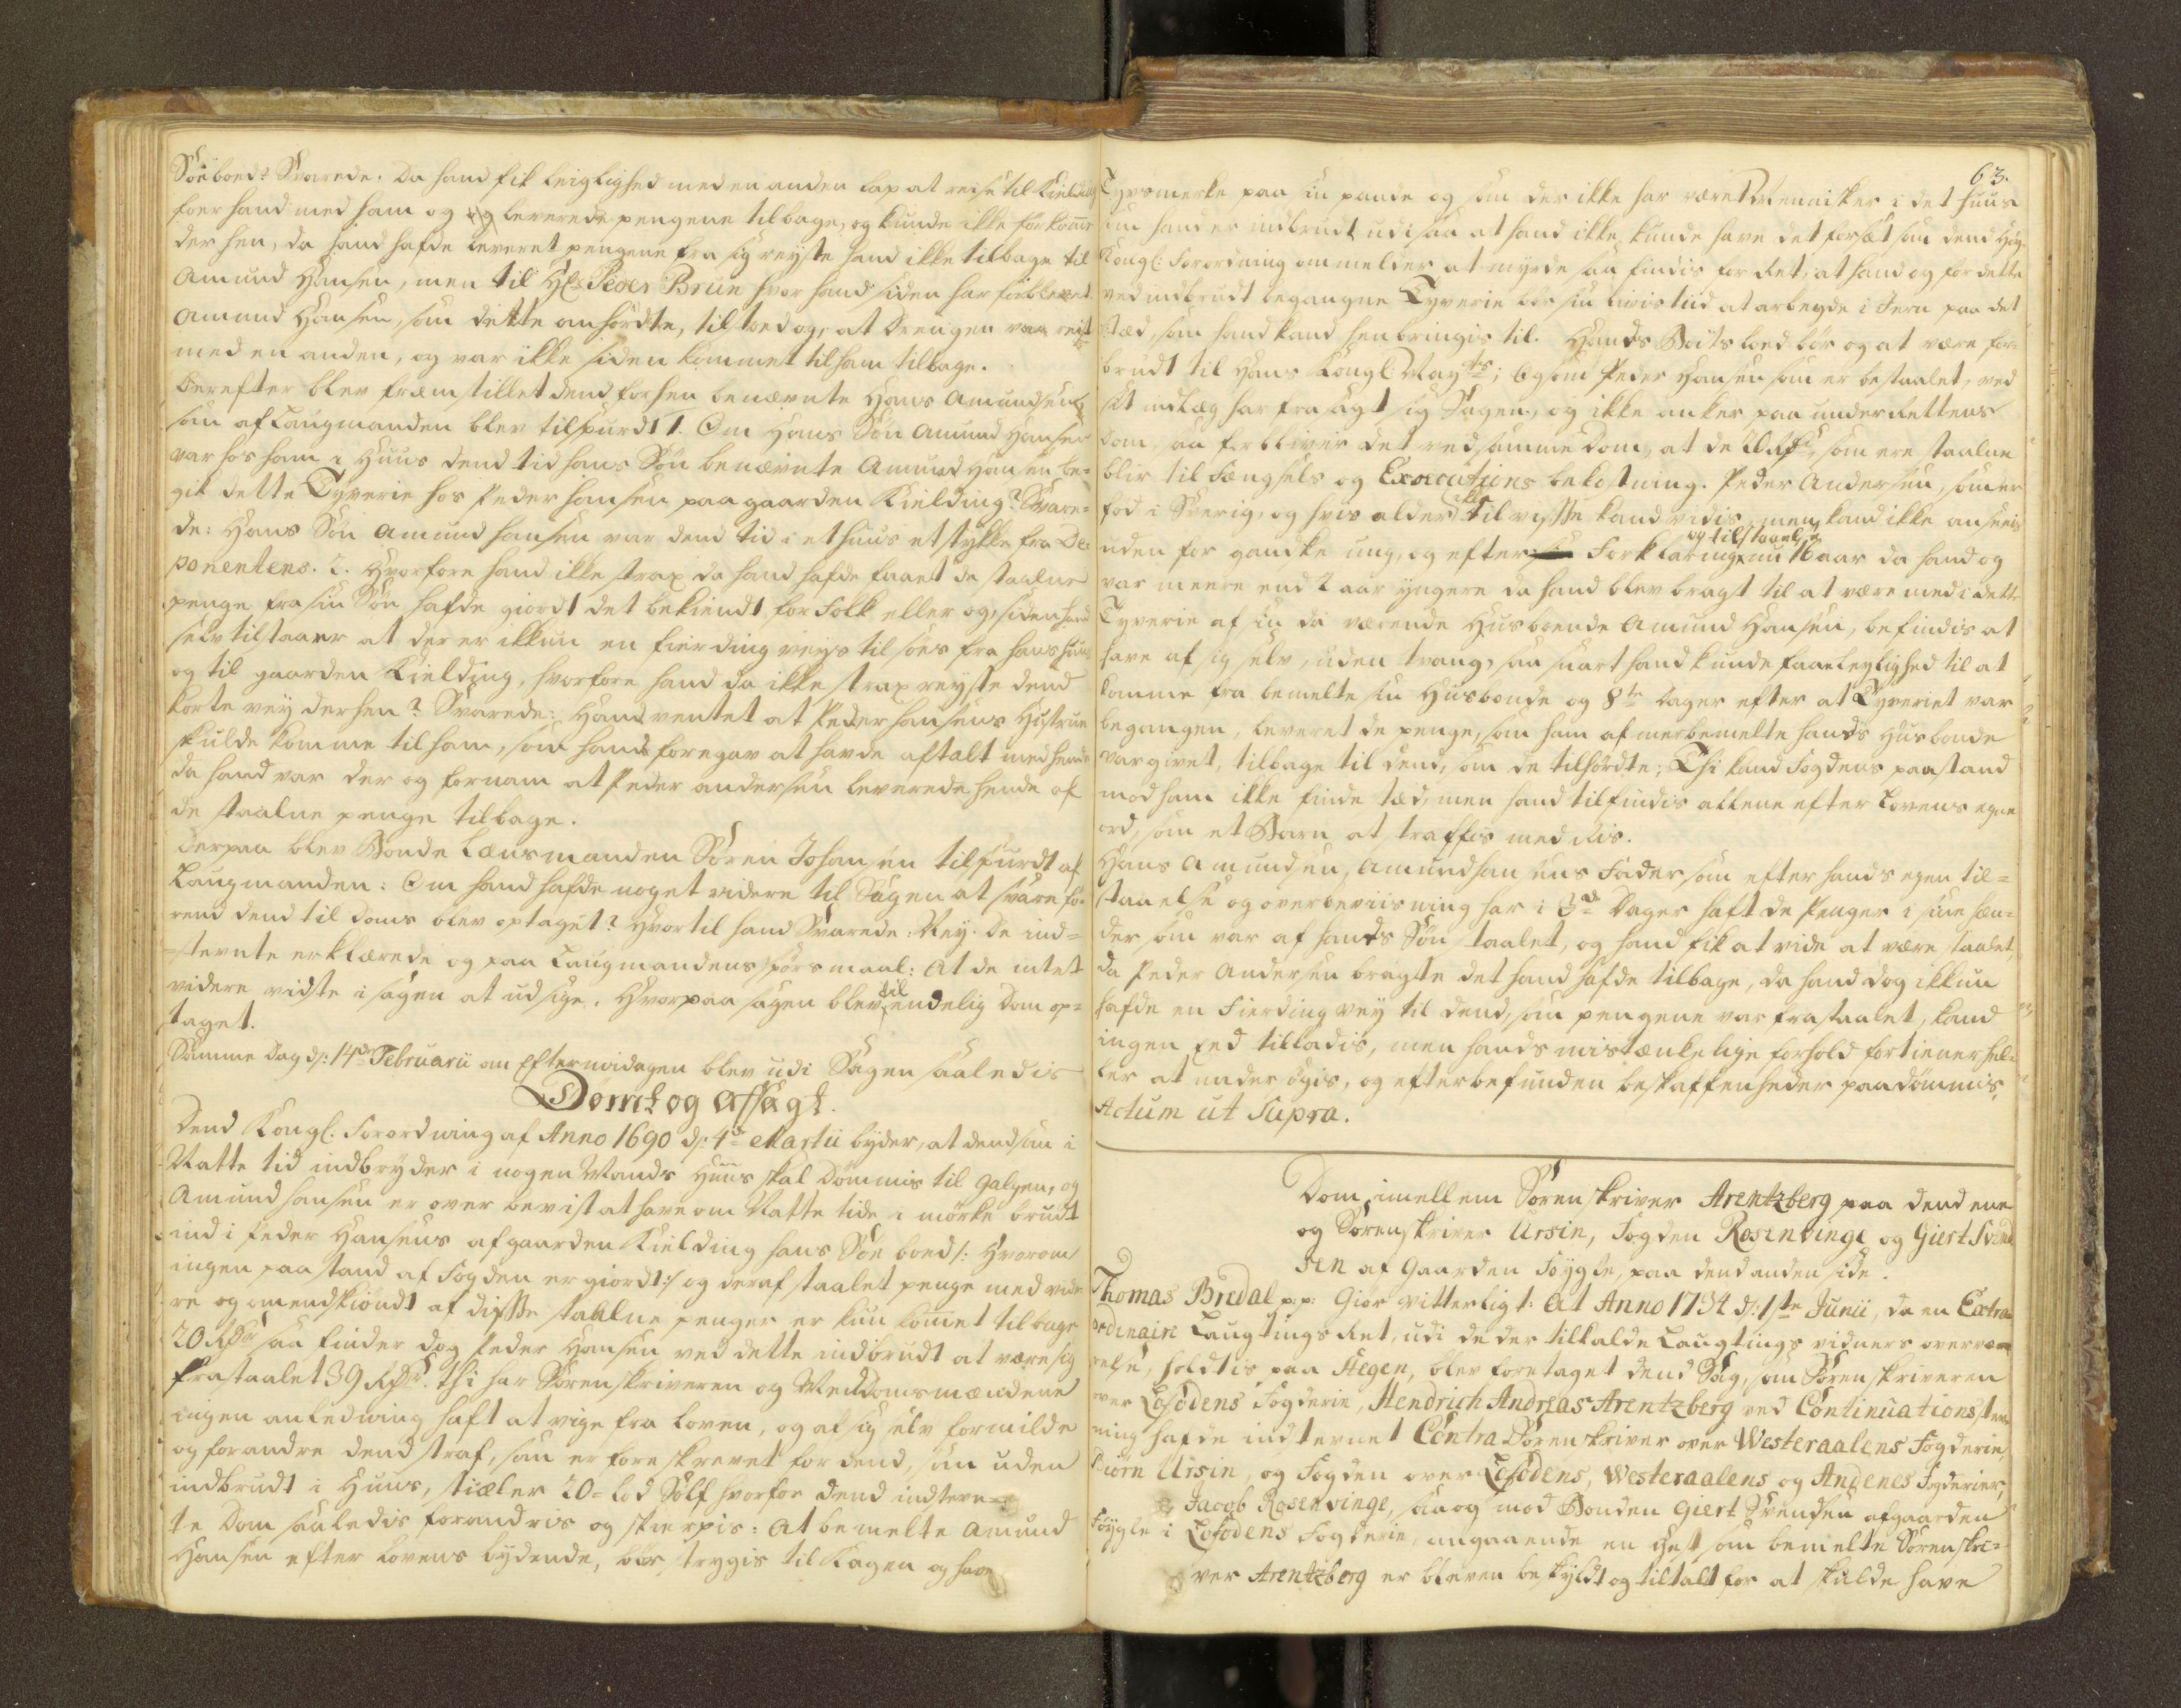 Söeboed? Svarede: Da hand fik leiglighed med en anden lap at reise til Kielding
foer hand med ham og leverede pengene tilbage, og kunde ikke for komme
der hen, da hand hafde leveret pengene fra sig reyste hand ikke tilbage til
Amund Hansen, men til Hr. Peder Brun hvor hand siden har forblevet.
Amund Hansen, som dette anhördte, tilstoed og, at Drengen var reist
med en anden, og var ikke siden kommet til ham tilbage.
Derefter blev fræmstillet dend forhen benævnte Hans Amundsen
som af Laugmanden blev tilspurdt 1. Om Hans Sön Amund Hansen
var hos ham i Huus dend tid hans Sön benævnte Amund Hansen be-
gik dette Tyverie hos Peder Hansen paa gaarden Kielding? Svare-
de: Hans Sön Amund Hansen var dend tid i et huus et stykke fra De-
ponentens. 2. Hvorfore hand ikke strax da hand hafde faaet de staalne
penge fra sin Sön hafde giordt det bekiendt for Folk eller og, siden hand
selv tilstaaer at der er ikkun en fierding veys til söes fra hans huus
og til gaarden Kielding, hvorfore hand da ikke strax reyste dend
korte vey derhen? Svarede: Hand ventet at Peder Hansens Hustrue
skulde komme til ham, som hand foregav at havde aftalt med hende
da hand var der og fornam at Peder Andersen leverede hende af
de staalne penge tilbage.
Derpaa blev Bonde Lænsmanden Sören Johansen tilspurdt af
Laugmanden: Om hand hafde noget videre til Sagen at svare fö-
rend dend til Doms blev optaget? Hvortil hand Svarede: Ney. De ind-
stevnte erklærede og paa Laugmandens spörsmaal: At de intet
videre vidste i sagen at udsige. Hvorpaa sagen blev til endelig Dom op-
taget.
Samme Dag d: 14de Februarii om Eftermidagen blev udi Sagen saaledis
Dömt og Afsagt.
Dend Kongl. Forordning af Anno 1690 d: 4de Martii byder, at dend som i
Natte tid indbryder i nogen Mands Huus skal Dömmis til Galgen, og
Amund Hansen er overbevist at have om Natte tide i mörke brudt
ind i Peder Hansens af gaarden Kielding hans Söe boed /: hvorom
ingen paastand af Fogden er giordt :/ og deraf staalet penge med vide-
re og omendskiöndt af disse staalne penger er kun komet tilbage
20 Rdr saa finder dog Peder Hansen ved dette indbrudt at være sig
frastaalet 39 Rdr. thi har Sörenskriveren og Meddomsmændene
ingen anledning haft at vige fra Loven, og af sig selv formilde
og forandre dend straf, som er foreskrevet for dend, som uden
indbrudt i Huus, stiæler 20 = lod Sölf hvorfor dend indstevn-
te Dom saaledis forandris og skierpis: At bemelte Amund
Hansen efter Lovens bydende, bör strygis til Kagen og have
63.
Tyvsmerke paa sin pande og som der ikke har været Mennisker i det huus
som hand er indbrudt udi saa at hand ikke kunde have det forsæt som dend höy-
Kongl: Forordning ommelder at myrde saa findis for Ret, at hand og for dette
ved indbrudt begangne Tyverie bör sin livis tiid at arbeyde i Jern paa det
stæd, som hand kand henbringis til. Hands Boeslod bör og at være for-
brudt til Hans Kongl: May:ts; Og som Peder Hansen som er bestaalet, ved
sit indlæg har frasagt sig Sagen, og ikke anker paa underRettens
Dom, saa forbliver det ved samme Dom, at de 20 Rdr, som ere staalne
blir til Fængsels og Executions bekostning. Peder Andersen, som er
föd i Sverrig, og hvis alder ikke til visse kand vidis, men kand ikke anseeis
uden for gandske ung, og efter Forklaring og tilstaaelse nu 16 aar da hand og
var meere end 2 aar yngere da hand blev bragt til at være med i dette
Tyverie af sin da værende Husbonde Amund Hansen, befindis at
have af sig selv, uden tvang, saa snart hand kunde faae leylighed til at
komme fra bemelte sin Husbonde og 8te Dager efter at Tyveriet var
begangen, leveret de penge, som ham af merbemelte hands Husbonde
var givet, tilbage til dend, som de tilhördte; Thi kand Fogdens paastand
mod ham ikke finde stæd, men hand tilfindis allene efter Lovens egne
ord, som et Barn at straffis med Riis.
Hans Amundsen, Amund Hansens Fader som efter hands egen til-
staaelse og overbeviisning har i 3de Dager haft de Penger i sine hæn-
der som var af hands Sön staalet, og hand fik at vide at være staalet,
da Peder Andersen bragte det hand hafde tilbage, da hand dog ikkun
hafde en Fierding vey til dend, som pengene var frastaalet, kand
ingen Eed tilladis, men hands mistænkelige forhold fortiener hel-
ler at undersögis, og efter befunden beskaffenheder paadömmis,
Actum ut supra.
Dom, imellem Sörenskriver Arentzberg paa dend ene
og Sörenskriver Ursin, Fogden Rosenvinge og Giert Svend-
sen af Gaarden Föygle, paa dend anden side.
Thomas Bredal p.p: Giör vitterligt: At Anno 1734 d: 1ste Junii, da en Extra
ordinaire Laugtings Ret, udi de der tilkalde Laugtings vidners overvæ-
relse, holdtis paa Stegen, blev foretaget dend Sag, som Sörenskriveren
over Lofodens Fogderie, Hendrich Andreas Arentzberg ved Continuations stev-
ning hafde indstevnet Contra Sörenskriver over Westeraalens Fogderie,
Biörn Ursin, og Fogden over Lofodens, Westeraalens og Andenes Fogderier,
Jacob Rosenvinge, saa og mod Bonden Giert Svendsen af gaarden
Föygle i Lofodens Fogderie, angaaende en Hest som bemelte Sörenskri-
ver Arentzberg er bleven beskyldt og tiltalt for at skulde have